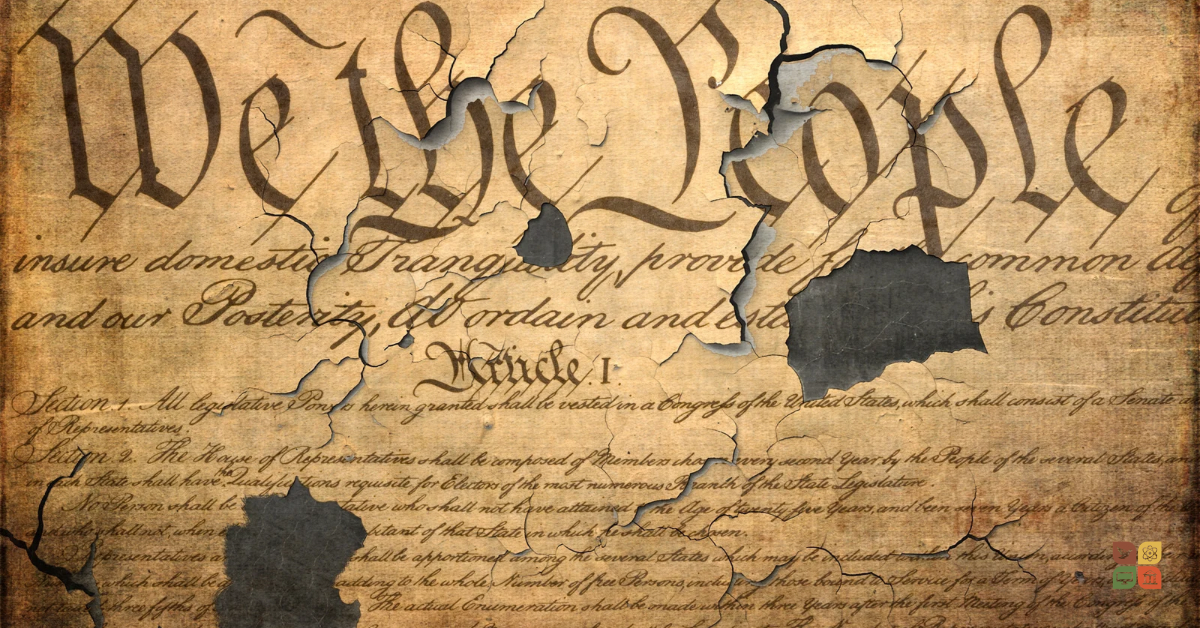 We the People
insure domestic Tranquility, provide common
and our Posterity, do ordain and Constitut
Article. I.
Section. 1. All legislative Powers herein granted shall be vested in a Congress of the United States, which shall consist of a Senate
of Representatives.
Section 2. The House of Representatives shall be composed of Members chosen every second Year by the People of the several States,
in each State shall have the Qualifications requisite for Electors of the most numerous Branch of the State Legislature.
No Person shall be who shall not have attained the Age of twenty five Years, and been seven Years a Citizen of the
of that State in which he shall be chosen.
shall be apportioned among the several States which may be included within this Union,
which shall be adding to the whole Number of free Persons, including those bound to Service for a Term of
three fifths of The actual Enumeration shall be made within three Years after the first Meeting of the Congress of the